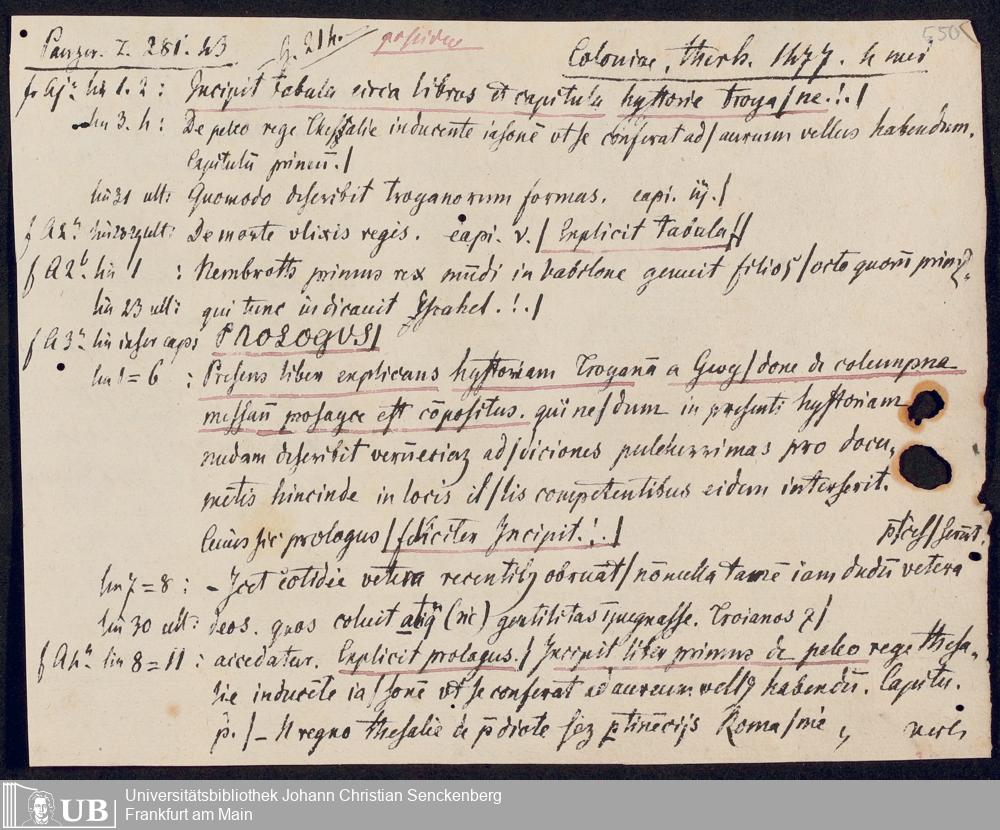 Panzer. I. 281. 43 G. 214. 550
Coloniae, therh. 1477. 4 mei
f. A1ª lin 1. 2 : Incipit tabula circa libros et capitula hystorie troya/ne.!./
lin 3. 4 : De peleo rege thessalie inducente iasonē vt se conferat ad/aureum vellus habendum.
Capitulū primū./
lin 31 ult: Quomodo describit troyanorum formas. capi. iij./
f A2ª ult: De morte vlixis regis. capi. v./ Explicit tabula//
f A2b lin 1 : Nembroth primus rex mūdi in babilone genuit filios/octo quorū prim9
lin 23 ult: qui tunc iudicauit Israhel.!./
f A3ª lin infer caps PROLOGUS/
lin 1=6 : Presens liber explicans hystoriam Troyanā a Gwy/done de columpna
messanē prosayce est cōpositus. qui nedum in presenti hystoriam
nudam describit ad/diciones pulcherrimas pro docu,
mētis hincinde in locis il/lis competentibus eidem interserit.
Cuius sic prologus/feliciter Incipit.!./
lin 7=8 : -Icet cotidie vetera recentib9 obruāt/nōnulla tamē iam dudū vetera
lin 30 ult: deos. quos coluit (sic) gentilitas īpugnasse. Troianos
f A4ª lin 8=11 : accedatur. Explicit prologus./ Incipit liber primus de peleo rege thesa,
lie inducēte ia/sonē vt se conferat ad aureum vell9 habendū. Capitu.
p̄./ - N regno thesalie de p̄dicte sez Roma/nie verte
Universitätsbibliothek Johann Christian Senckenberg
UB Frankfurt am Main